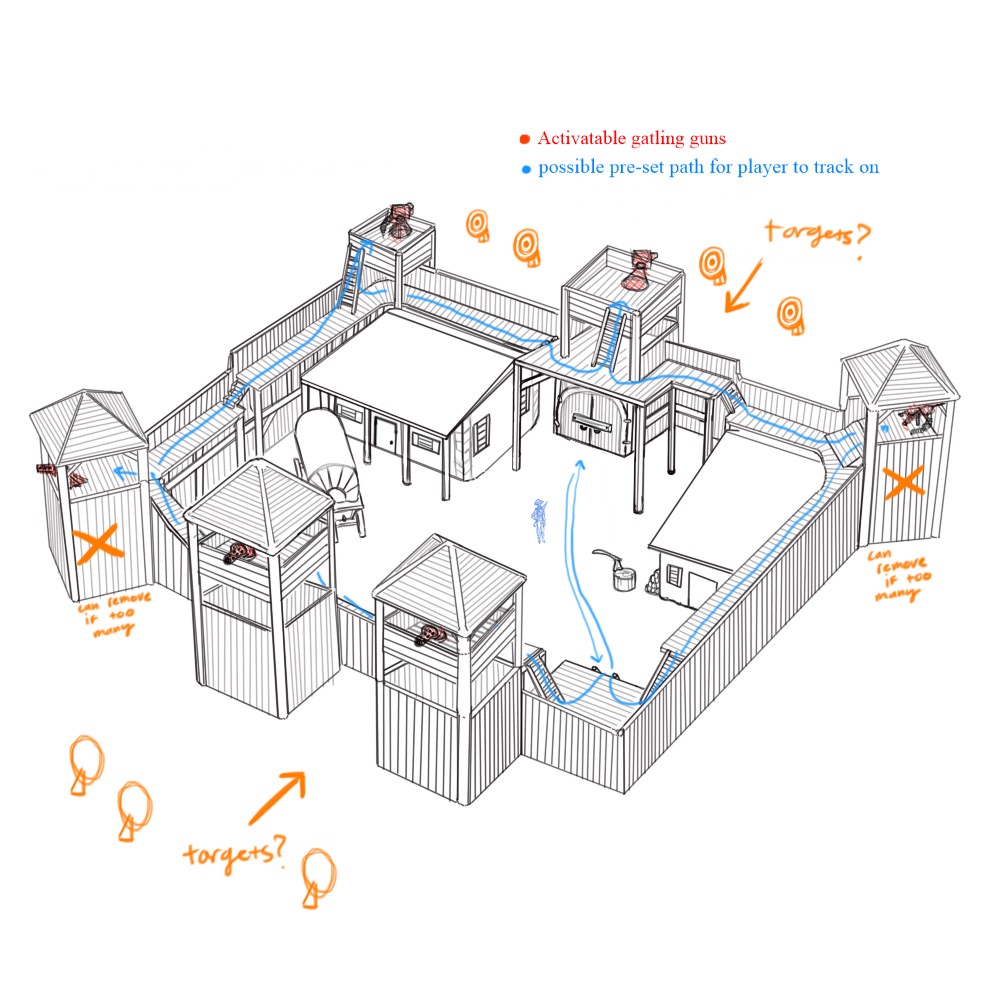 Activatable gatling guns
possible pre-set path for player to track on
targets?
can
remove
if too
many
can remove
if too
many
targets?